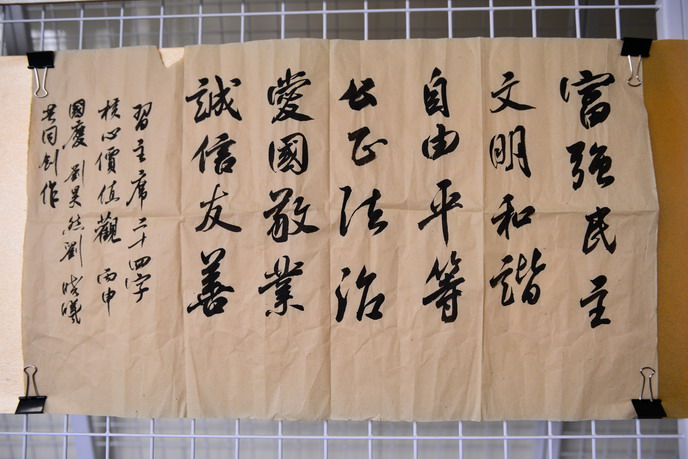 富強民主
文明和諧
自由平等
公正法治
愛國敬業
誠信友善
習主席二十四字
核心價值觀 丙申
國慶 劉昊然劉曉曦
共同創作